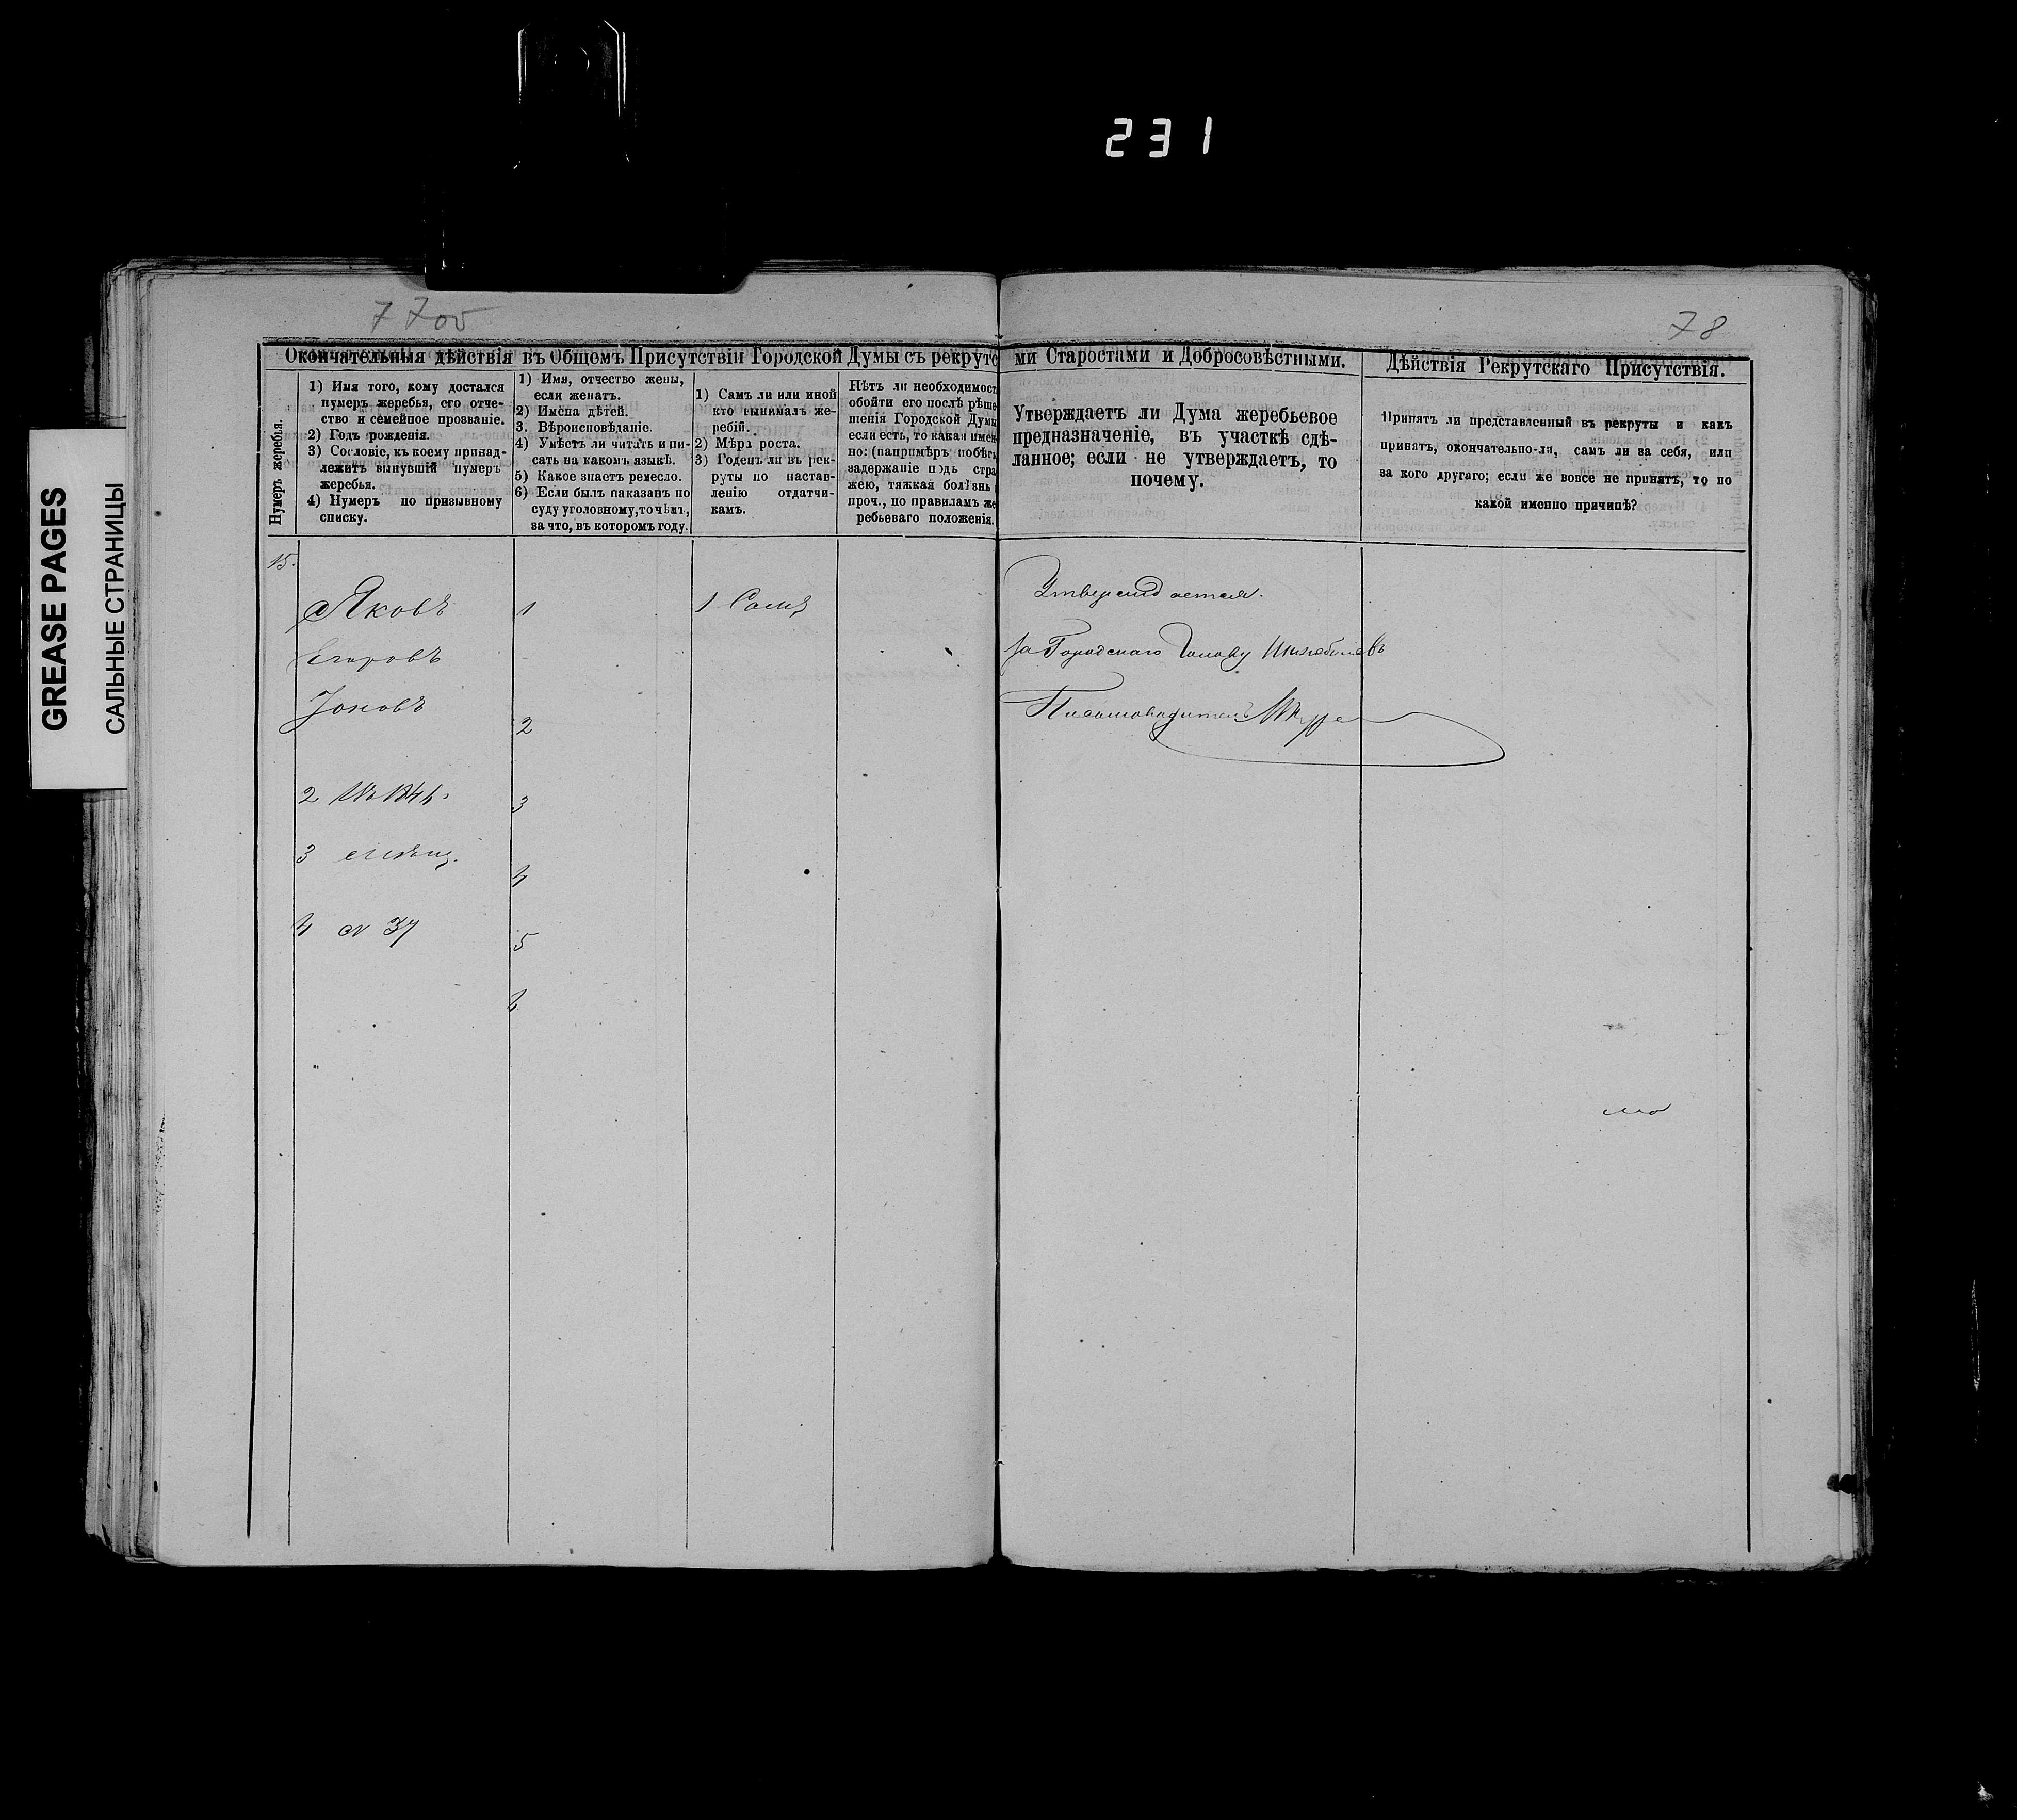 231
GREASE PAGES
САЛЬНЫЕ СТРАНИЦЫ
77об
78
Окончательныя дѣйствія въ Общемъ Присутствіи Городской Думы съ рекрутс
ми Старостами и Добросовѣстными.
Дѣйствія Рекрутскаго Присутствія.
Нумеръ жеребья.
1) Имя того, кому достался
нумеръ жеребья, его отче-
ство и семейное прозваніе.
2) Годъ рожденія.
3) Сословіе, къ коему принад-
лежитъ вынувшій нумеръ
жеребья.
4) Нумеръ по призывному
списку.
1) Имя, отчество жены,
если женатъ.
2) Имена дѣтей.
3. Вѣроисповѣданіе.
4) Умѣетъ ли читать и пи-
сать на какомъ языкѣ.
5) Какое знаетъ ремесло.
6) Если былъ наказанъ по
суду уголовному, то чѣмъ,
за что, въ которомъ году.
1) Самъ ли или иной
кто вынималъ же-
ребій.
2) Мѣра роста.
3) Годенъ ли въ рек-
руты по настав-
ленію отдатчи-
камъ.
Нѣтъ ли необходимост
обойти его послѣ рѣше
шенія Городской Думы
если есть, то какая имен
но: (напримѣръ побѣгъ
задержаніе подъ стра
жею, тяжкая болѣзнь
проч., по правиламъ же
ребьеваго положенія.
Утверждаетъ ли Дума жеребьевое
предназначеніе, въ участкѣ сдѣ-
ланное; если не утверждаетъ, то
почему.
Принятъ ли представленный въ рекруты и какъ
принятъ, окончательно-ли, самъ ли за себя, или
за кого другаго; если же вовсе не принятъ, то по
какой именно причинѣ?
15.
Яковъ
Егоровъ
Іоновъ
2
3
4 № 37
1
2
3
4
5
6
1 Самъ
Утверждается.
За Городскаго Голову
Письмоводитель